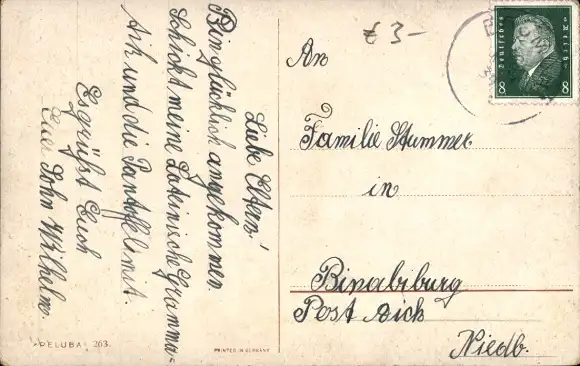 Liebe Eltern!
Bin glücklich angekommen
Schickt meine Lateinische Gramma-
tik und die Pantoffeln mit.
Es grüßt Euch
Euer Sohn Wilhelm.
£ 3-
An
Familie Stummer
in
Binabiburg
Post Aich
Niedb.
Deutsches Reich
8 8
PELUBA 263.
PRINTED IN GERMANY